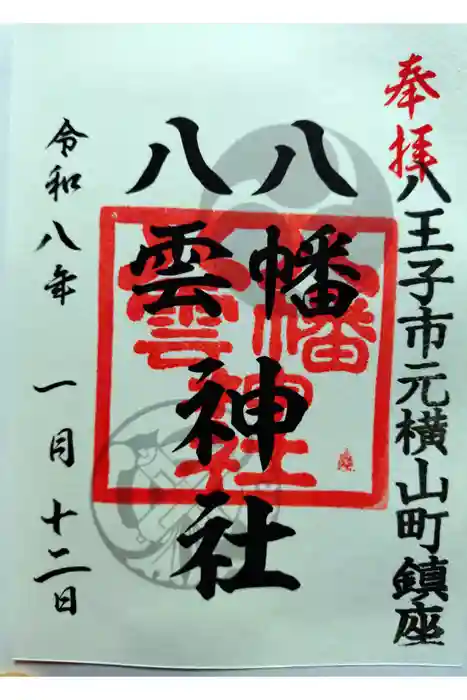 奉拝
八王子市元横山町鎮座
八幡
八雲
神社
令和八年 一月十二日